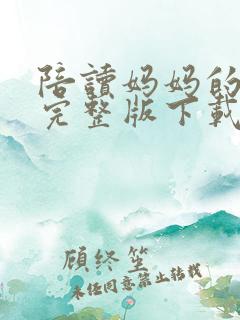 陪讀妈妈的
完整版下載
顾终笙
未经同意禁止转载